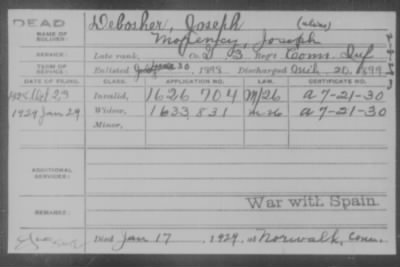 DEAD
Debosher, Joseph (alias)
NAME OF SOLDIER: Joseph
SERVICE: Late rank, Co. 3 Reg't Conn. Inf
TERM OF SERVICE: Enlisted 1898 Discharged Mch. 20, 1899
DATE OF FILING. CLASS. APPLICATION NO. LAW. CERTIFICATE NO.
23 Invalid, 1626 704 M/26 A 7-21-30
1929 Jan 29 Widow, 1633,831 A 7-21-30
Minor,
ADDITIONAL SERVICES:
War with Spain.
REMARKS:
Died Jan 17, 1929, at Norwalk, Conn.